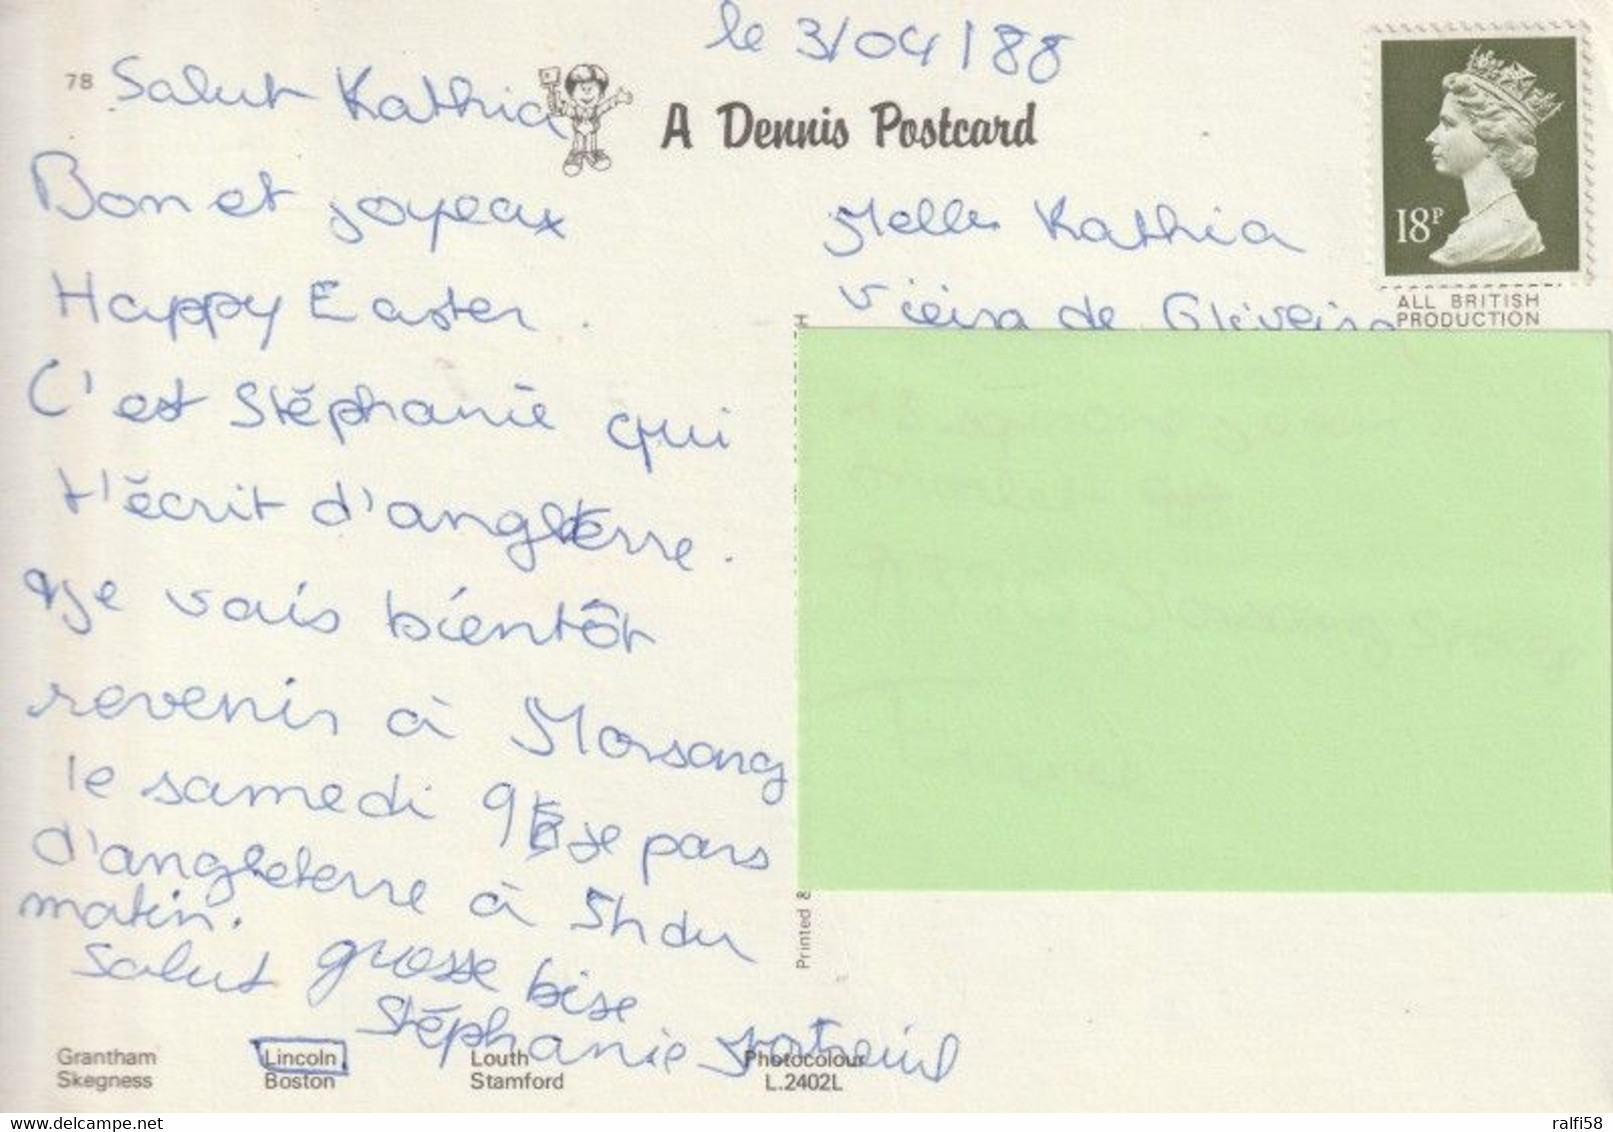 le 3/04/88
78
Salut Kathia
A Dennis Postcard
Bon et joyeux
Happy Easter.
C'est Stéphanie qui
t'écrit d'angleterre.
Je vais bientôt
revenir à Morsang
le samedi 9 je pars
d'angleterre à 5h du
matin.
Salut grosse bise
Stéphanie
Melle Kathia
Vieira de Oliveira
18P
ALL BRITISH
PRODUCTION
Printed &
Grantham
Skegness
Lincoln
Boston
Louth
Stamford
Photocolour
L.2402L
ralfi58